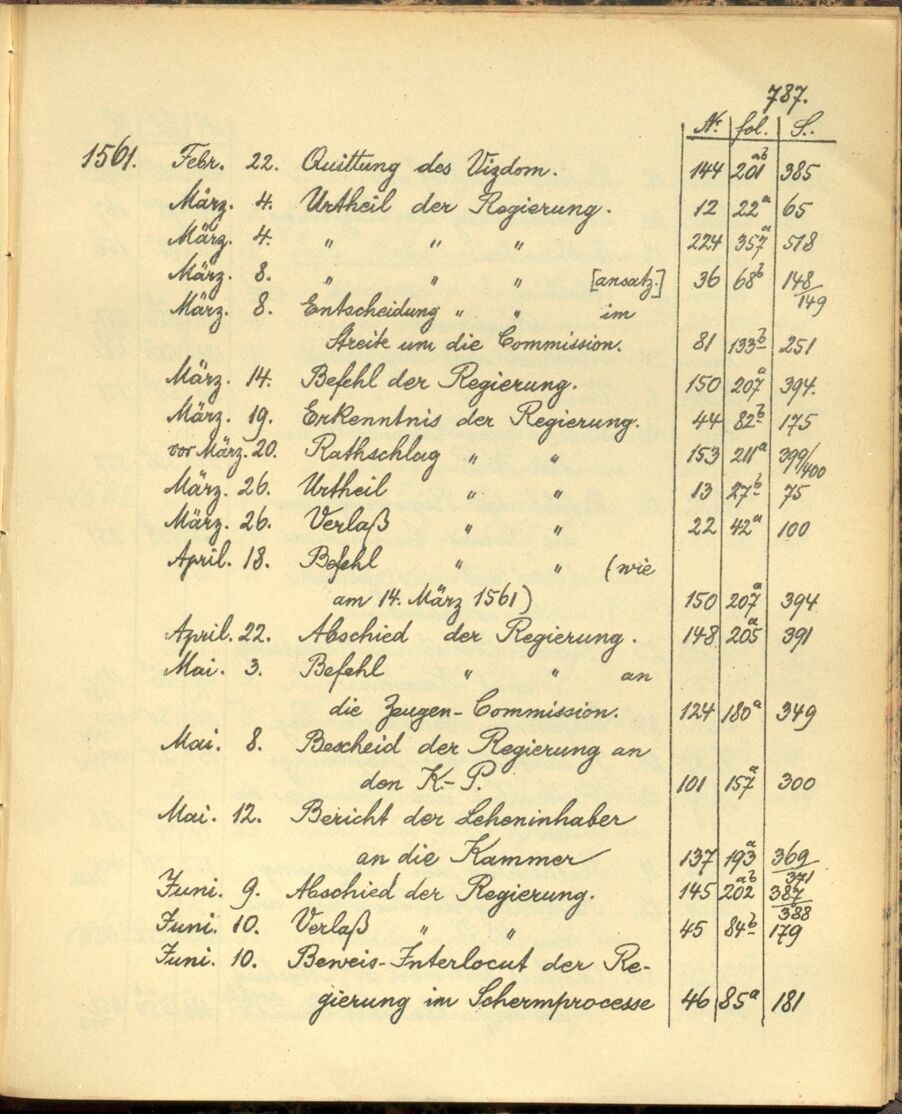 787.
Nr. fol. S.
1561. Febr. 22. Quittung des Vizdom. 144 201ab 385
März. 4. Urtheil der Regierung. 12 22a 65
März. 4. " " " 224 357a 518
März. 8. " " " [ansatz.] 36 68b 148/149
März. 8. Entscheidung " " im
Streite um die Commission. 81 133b 251
März. 14. Befehl der Regierung. 150 207a 394.
März. 19. Erkenntnis der Regierung. 44 82b 175
vor März. 20. Rathschlag " " 153 211a 399/400
März. 26. Urtheil " " 13 27b 75
März. 26. Verlaß " " 22 42a 100
April. 18. Befehl " " (wie
am 14. März 1561) 150 207a 394
April. 22. Abschied der Regierung. 148 205a 391
Mai. 3. Befehl " " an
die Zeugen-Commission. 124 180a 349
Mai. 8. Bescheid der Regierung an
den K.-P. 101 157a 300
Mai. 12. Bericht der Leheninhaber
an die Kammer 137 193a 369/371
Juni. 9. Abschied der Regierung. 145 202ab 387/388
Juni. 10. Verlaß " " 45 84b 179
Juni. 10. Beweis-Interlocut der Re-
gierung im Schermprocesse 46 85a 181